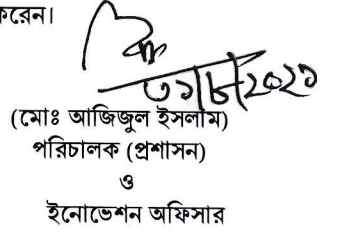 করেন।
৩১/৮/২০২১
(মোঃ আজিজুল ইসলাম)
পরিচালক (প্রশাসন)
ও
ইনোভেশন অফিসার